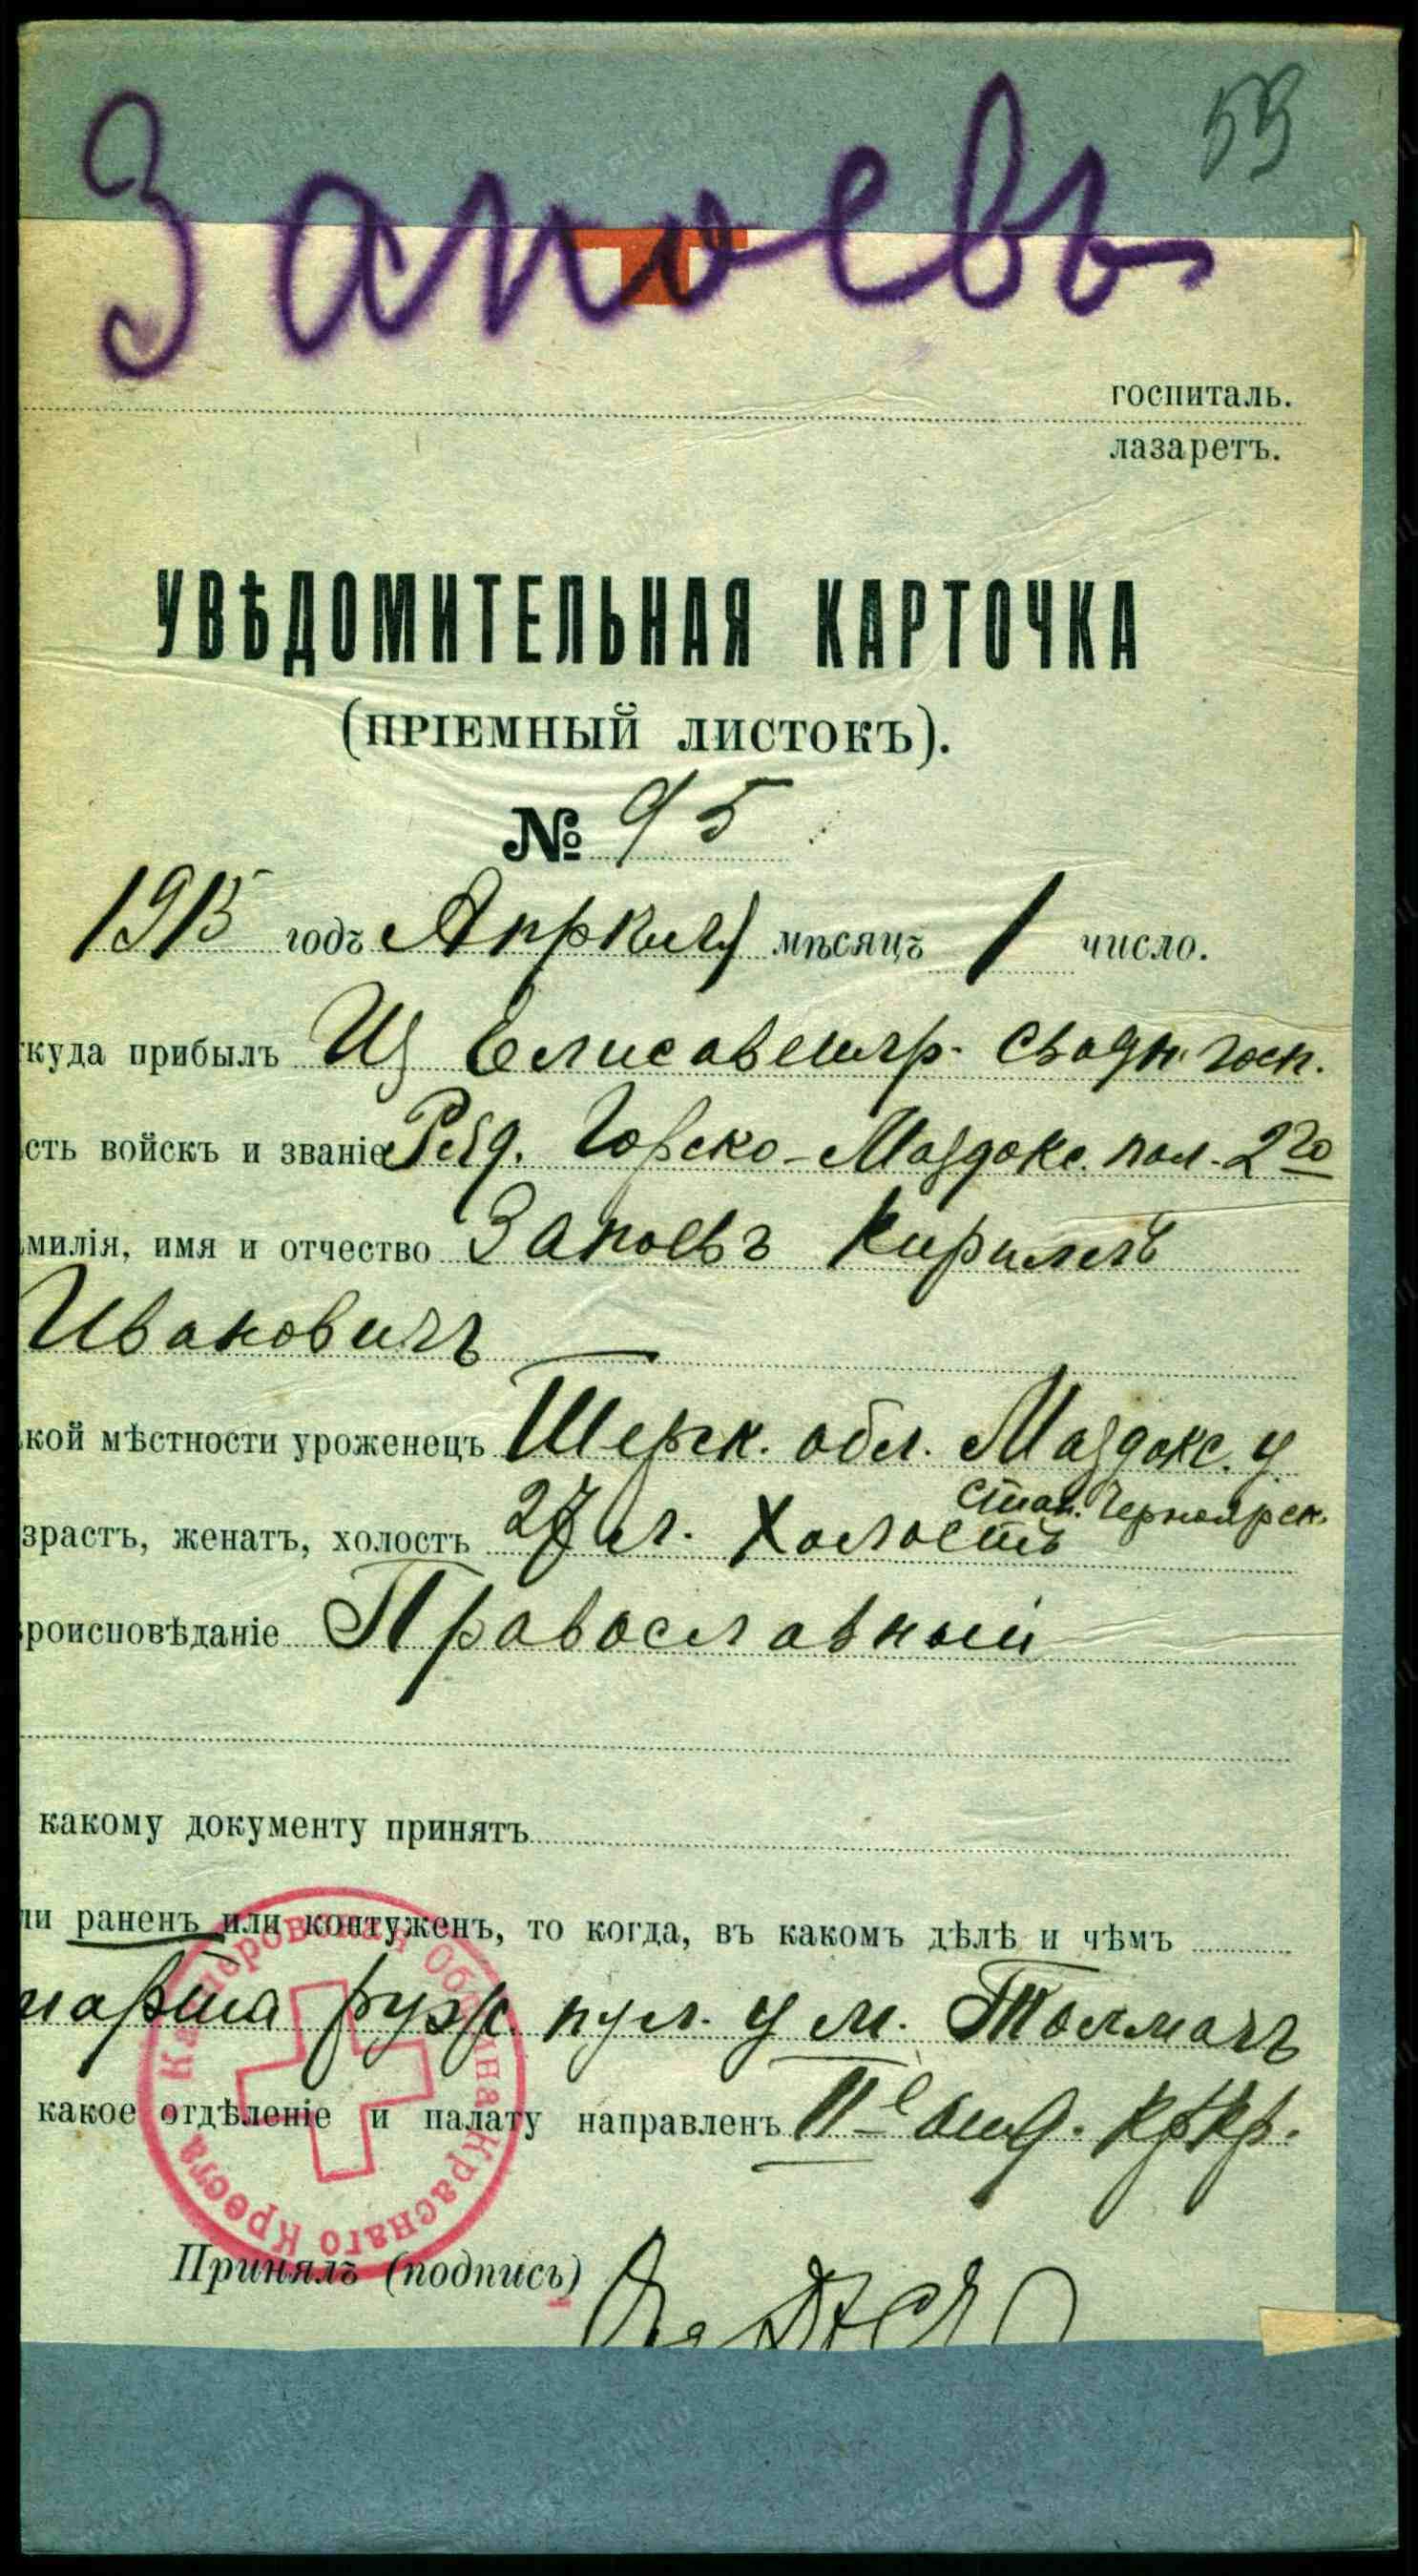 53
Запоевъ
госпиталь.
лазаретъ.
УВѢДОМИТЕЛЬНАЯ КАРТОЧКА
(ПРІЕМНЫЙ ЛИСТОКЪ).
№ 95
1915 годъ Апрѣля мѣсяцъ 1 число.
ткуда прибылъ Из Елисаветгр. сводн. госп.
сть войскъ и званіе Ряд. Горско-Моздокс. пол. 2го
милія, имя и отчество Запоевъ Кириллъ
Ивановичъ
кой мѣстности уроженецъ Терск. обл. Моздокс. у.
Стан. Черноярск.
зрастъ, женатъ, холостъ 27 л. Холостъ
роисповѣданіе Православный
какому документу принятъ
ли раненъ или контуженъ, то когда, въ какомъ дѣлѣ и чѣмъ
марта руж. пул. у м. Толмачъ
какое отдѣленіе и палату направленъ IIе отд. Кр. Кр.
Краснаго Креста
Принялъ (подпись)